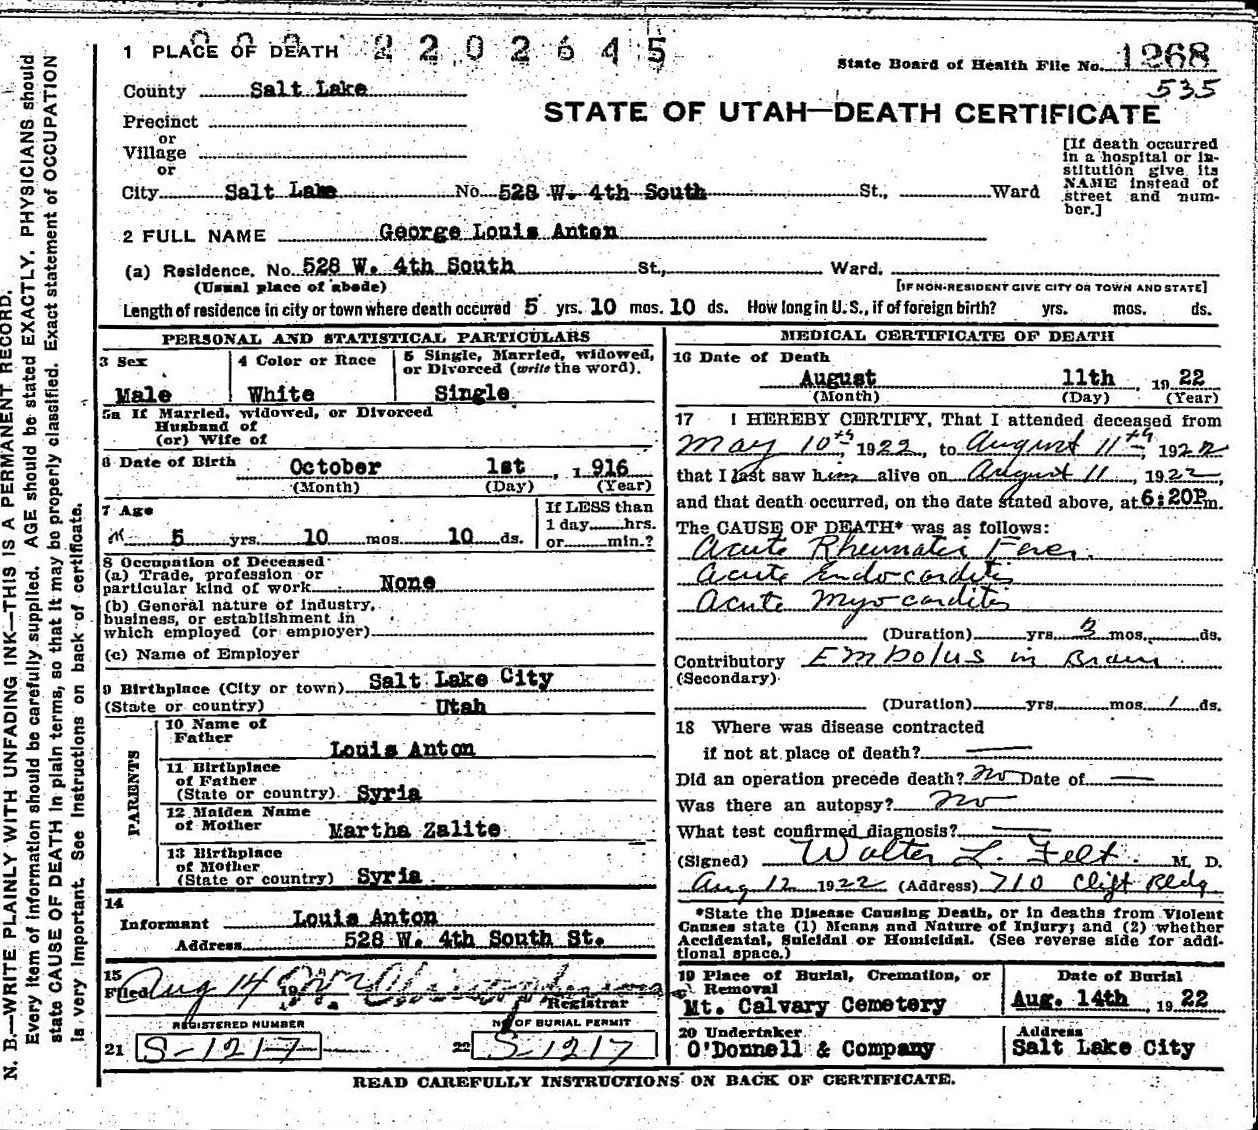 N. B.—WRITE PLAINLY WITH UNFADING INK—THIS IS A PERMANENT RECORD.
Every item of information should be carefully supplied. AGE should be stated EXACTLY. PHYSICIANS should
state CAUSE OF DEATH in plain terms, so that it may be properly classified. Exact statement of OCCUPATION
is very important. See instructions on back of certificate.
2202645
1 PLACE OF DEATH
State Board of Health File No. 1268
535
County Salt Lake
STATE OF UTAH—DEATH CERTIFICATE
Precinct
or
Village
or
City Salt Lake No. 528 W. 4th South St., Ward
[If death occurred
in a hospital or in-
stitution give its
NAME instead of
street and num-
ber.]
2 FULL NAME George Louis Anton
(a) Residence. No. 528 W. 4th South St., Ward.
(Usual place of abode) [IF NON-RESIDENT GIVE CITY OR TOWN AND STATE]
Length of residence in city or town where death occured 5 yrs. 10 mos. 10 ds. How long in U.S., if of foreign birth? yrs. mos. ds.
PERSONAL AND STATISTICAL PARTICULARS
3 Sex
Male
4 Color or Race
White
5 Single, Married, widowed,
or Divorced (write the word).
Single
5a If Married, widowed, or Divorced
Husband of
(or) Wife of
6 Date of Birth October 1st, 1916
(Month) (Day) (Year)
7 Age
5 yrs. 10 mos. 10 ds.
If LESS than
1 day hrs.
or min.?
8 Occupation of Deceased
(a) Trade, profession or
particular kind of work None
(b) General nature of industry,
business, or establishment in
which employed (or employer)
(c) Name of Employer
9 Birthplace (City or town) Salt Lake City
(State or country) Utah
PARENTS
10 Name of
Father
Louis Anton
11 Birthplace
of Father
(State or country) Syria
12 Maiden Name
of Mother Martha Zalite
13 Birthplace
of Mother
(State or country) Syria
14
Informant Louis Anton
Address 528 W. 4th South St.
15
Filed Aug 14 19
Registrar
REGISTERED NUMBER
21 S-1217
No OF BURIAL PERMIT
22 S-1217
MEDICAL CERTIFICATE OF DEATH
16 Date of Death
August 11th, 1922
(Month) (Day) (Year)
17 I HEREBY CERTIFY, That I attended deceased from
May 10th, 1922, to August 11th, 1922
that I last saw him alive on August 11, 1922,
and that death occurred, on the date stated above, at 6:20P m.
The CAUSE OF DEATH* was as follows:
Acute Rheumatic Fever.
Acute Endocarditis
Acute Myocarditis
(Duration) yrs. 3 mos. ds.
Contributory Embolus in Brain
(Secondary)
(Duration) yrs. mos. 1 ds.
18 Where was disease contracted
if not at place of death? —
Did an operation precede death? No Date of —
Was there an autopsy? No
What test confirmed diagnosis? —
(Signed) Walter L. Felt. M. D.
Aug 12 1922 (Address) 710 Clift Bldg
*State the Disease Causing Death, or in deaths from Violent
Causes state (1) Means and Nature of Injury; and (2) whether
Accidental, Suicidal or Homicidal. (See reverse side for addi-
tional space.)
19 Place of Burial, Cremation, or
Removal
Mt. Calvary Cemetery
Date of Burial
Aug. 14th, 1922
20 Undertaker
O'Donnell & Company
Address
Salt Lake City
READ CAREFULLY INSTRUCTIONS ON BACK OF CERTIFICATE.